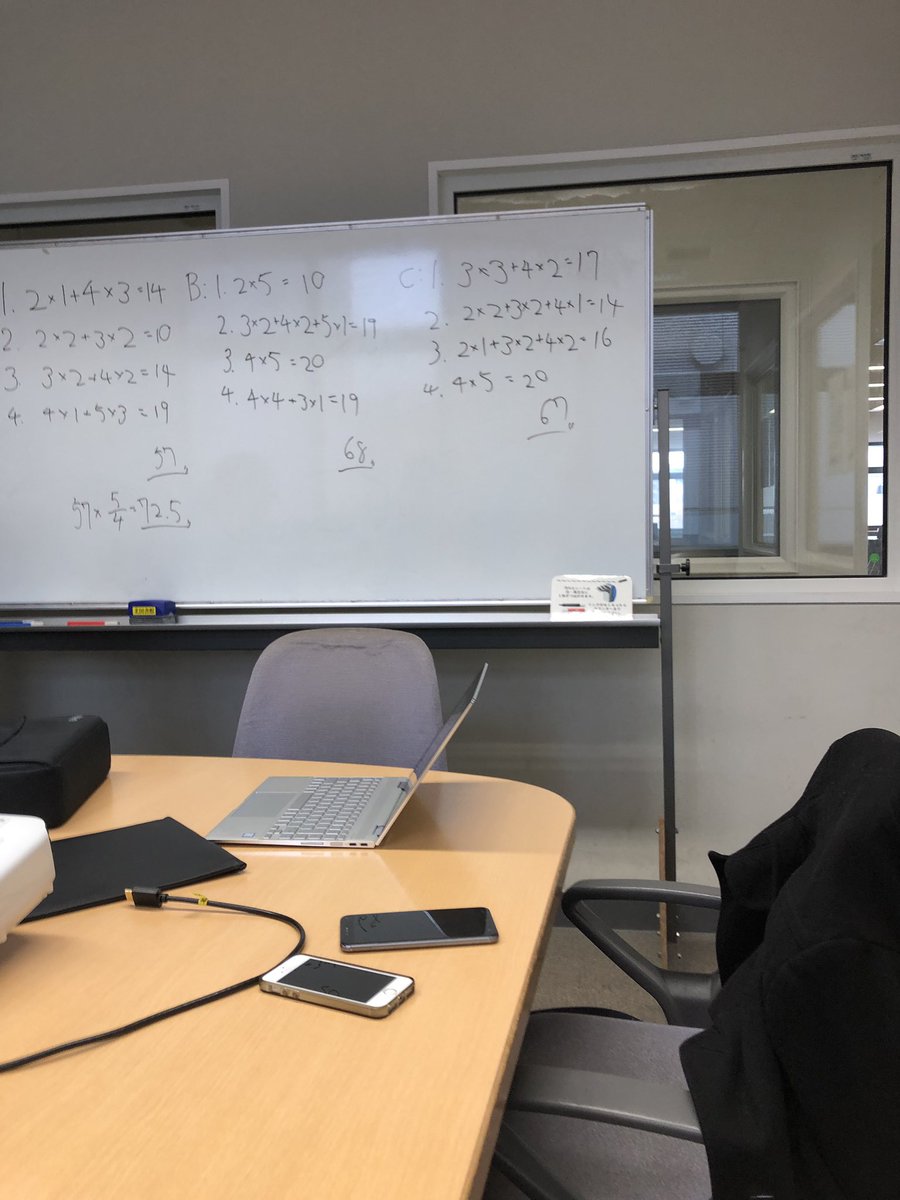 1. 2×1+4×3=14
2. 2×2+3×2=10
3. 3×2+4×2=14
4. 4×1+5×3=19
57
57×5/4=72.5
B: 1. 2×5=10
2. 3×2+4×2+5×1=19
3. 4×5=20
4. 4×4+3×1=19
68
C: 1. 3×3+4×2=17
2. 2×2+3×2+4×1=14
3. 2×1+3×2+4×2=16
4. 4×5=20
67